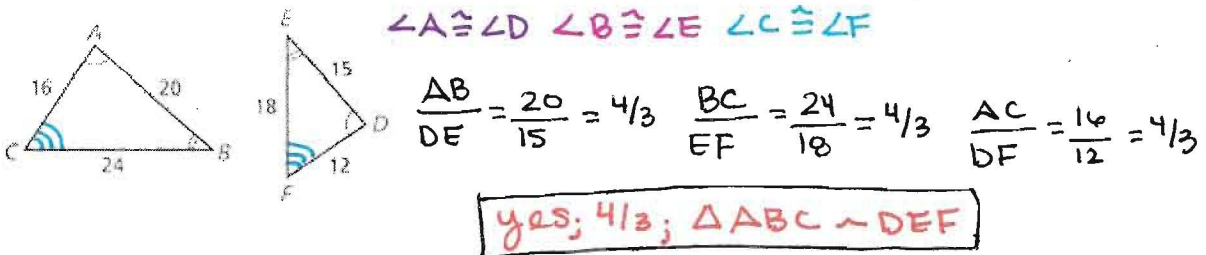 ∠A≅∠D ∠B≅∠E ∠C≅∠F
A
16
20
C
24
B
E
15
18
D
12
F
AB/DE = 20/15 = 4/3 BC/EF = 24/18 = 4/3 AC/DF = 16/12 = 4/3
yes; 4/3; △ABC ~ DEF